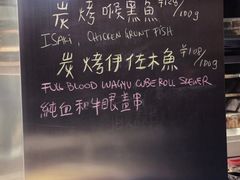 炭烤喉黑魚 /100g
ISAKI, CHICKEN GRUNT FISH
炭烤伊佐木魚 /100g
FULL BLOOD WAGYU CUBE ROLL SKEWER
純血和牛眼蓋串